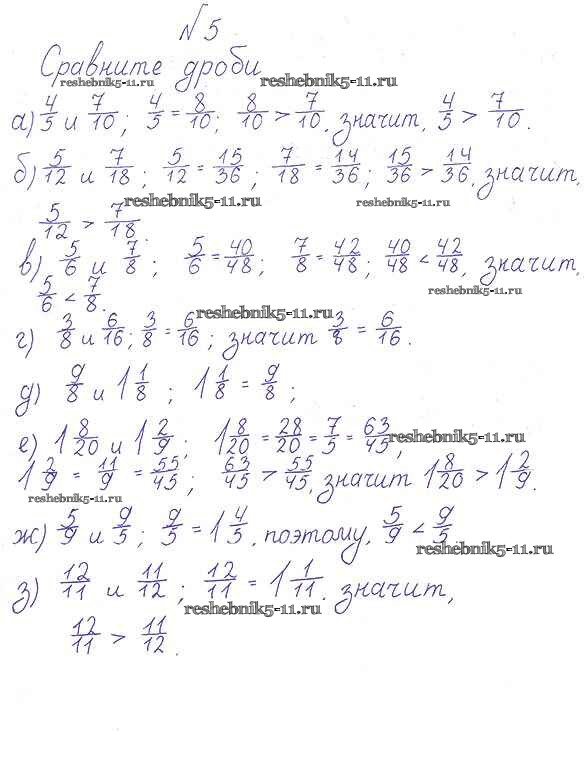 №5
Сравните дроби
reshebnik5-11.ru reshebnik5-11.ru
а) 4/5 и 7/10; 4/5 = 8/10; 8/10 > 7/10, значит, 4/5 > 7/10.
б) 5/12 и 7/18; 5/12 = 15/36; 7/18 = 14/36; 15/36 > 14/36, значит,
reshebnik5-11.ru reshebnik5-11.ru
5/12 > 7/18.
в) 5/6 и 7/8; 5/6 = 40/48; 7/8 = 42/48; 40/48 < 42/48, значит,
reshebnik5-11.ru
5/6 < 7/8.
reshebnik5-11.ru
г) 3/8 и 6/16; 3/8 = 6/16; значит 3/8 = 6/16.
д) 9/8 и 1 1/8; 1 1/8 = 9/8;
е) 1 8/20 и 1 2/9; 1 8/20 = 28/20 = 7/5 = 63/45,
reshebnik5-11.ru
1 2/9 = 11/9 = 55/45; 63/45 > 55/45, значит 1 8/20 > 1 2/9.
reshebnik5-11.ru
ж) 5/9 и 9/5; 9/5 = 1 4/5, поэтому, 5/9 < 9/5.
reshebnik5-11.ru
з) 12/11 и 11/12; 12/11 = 1 1/11. значит,
reshebnik5-11.ru
12/11 > 11/12.